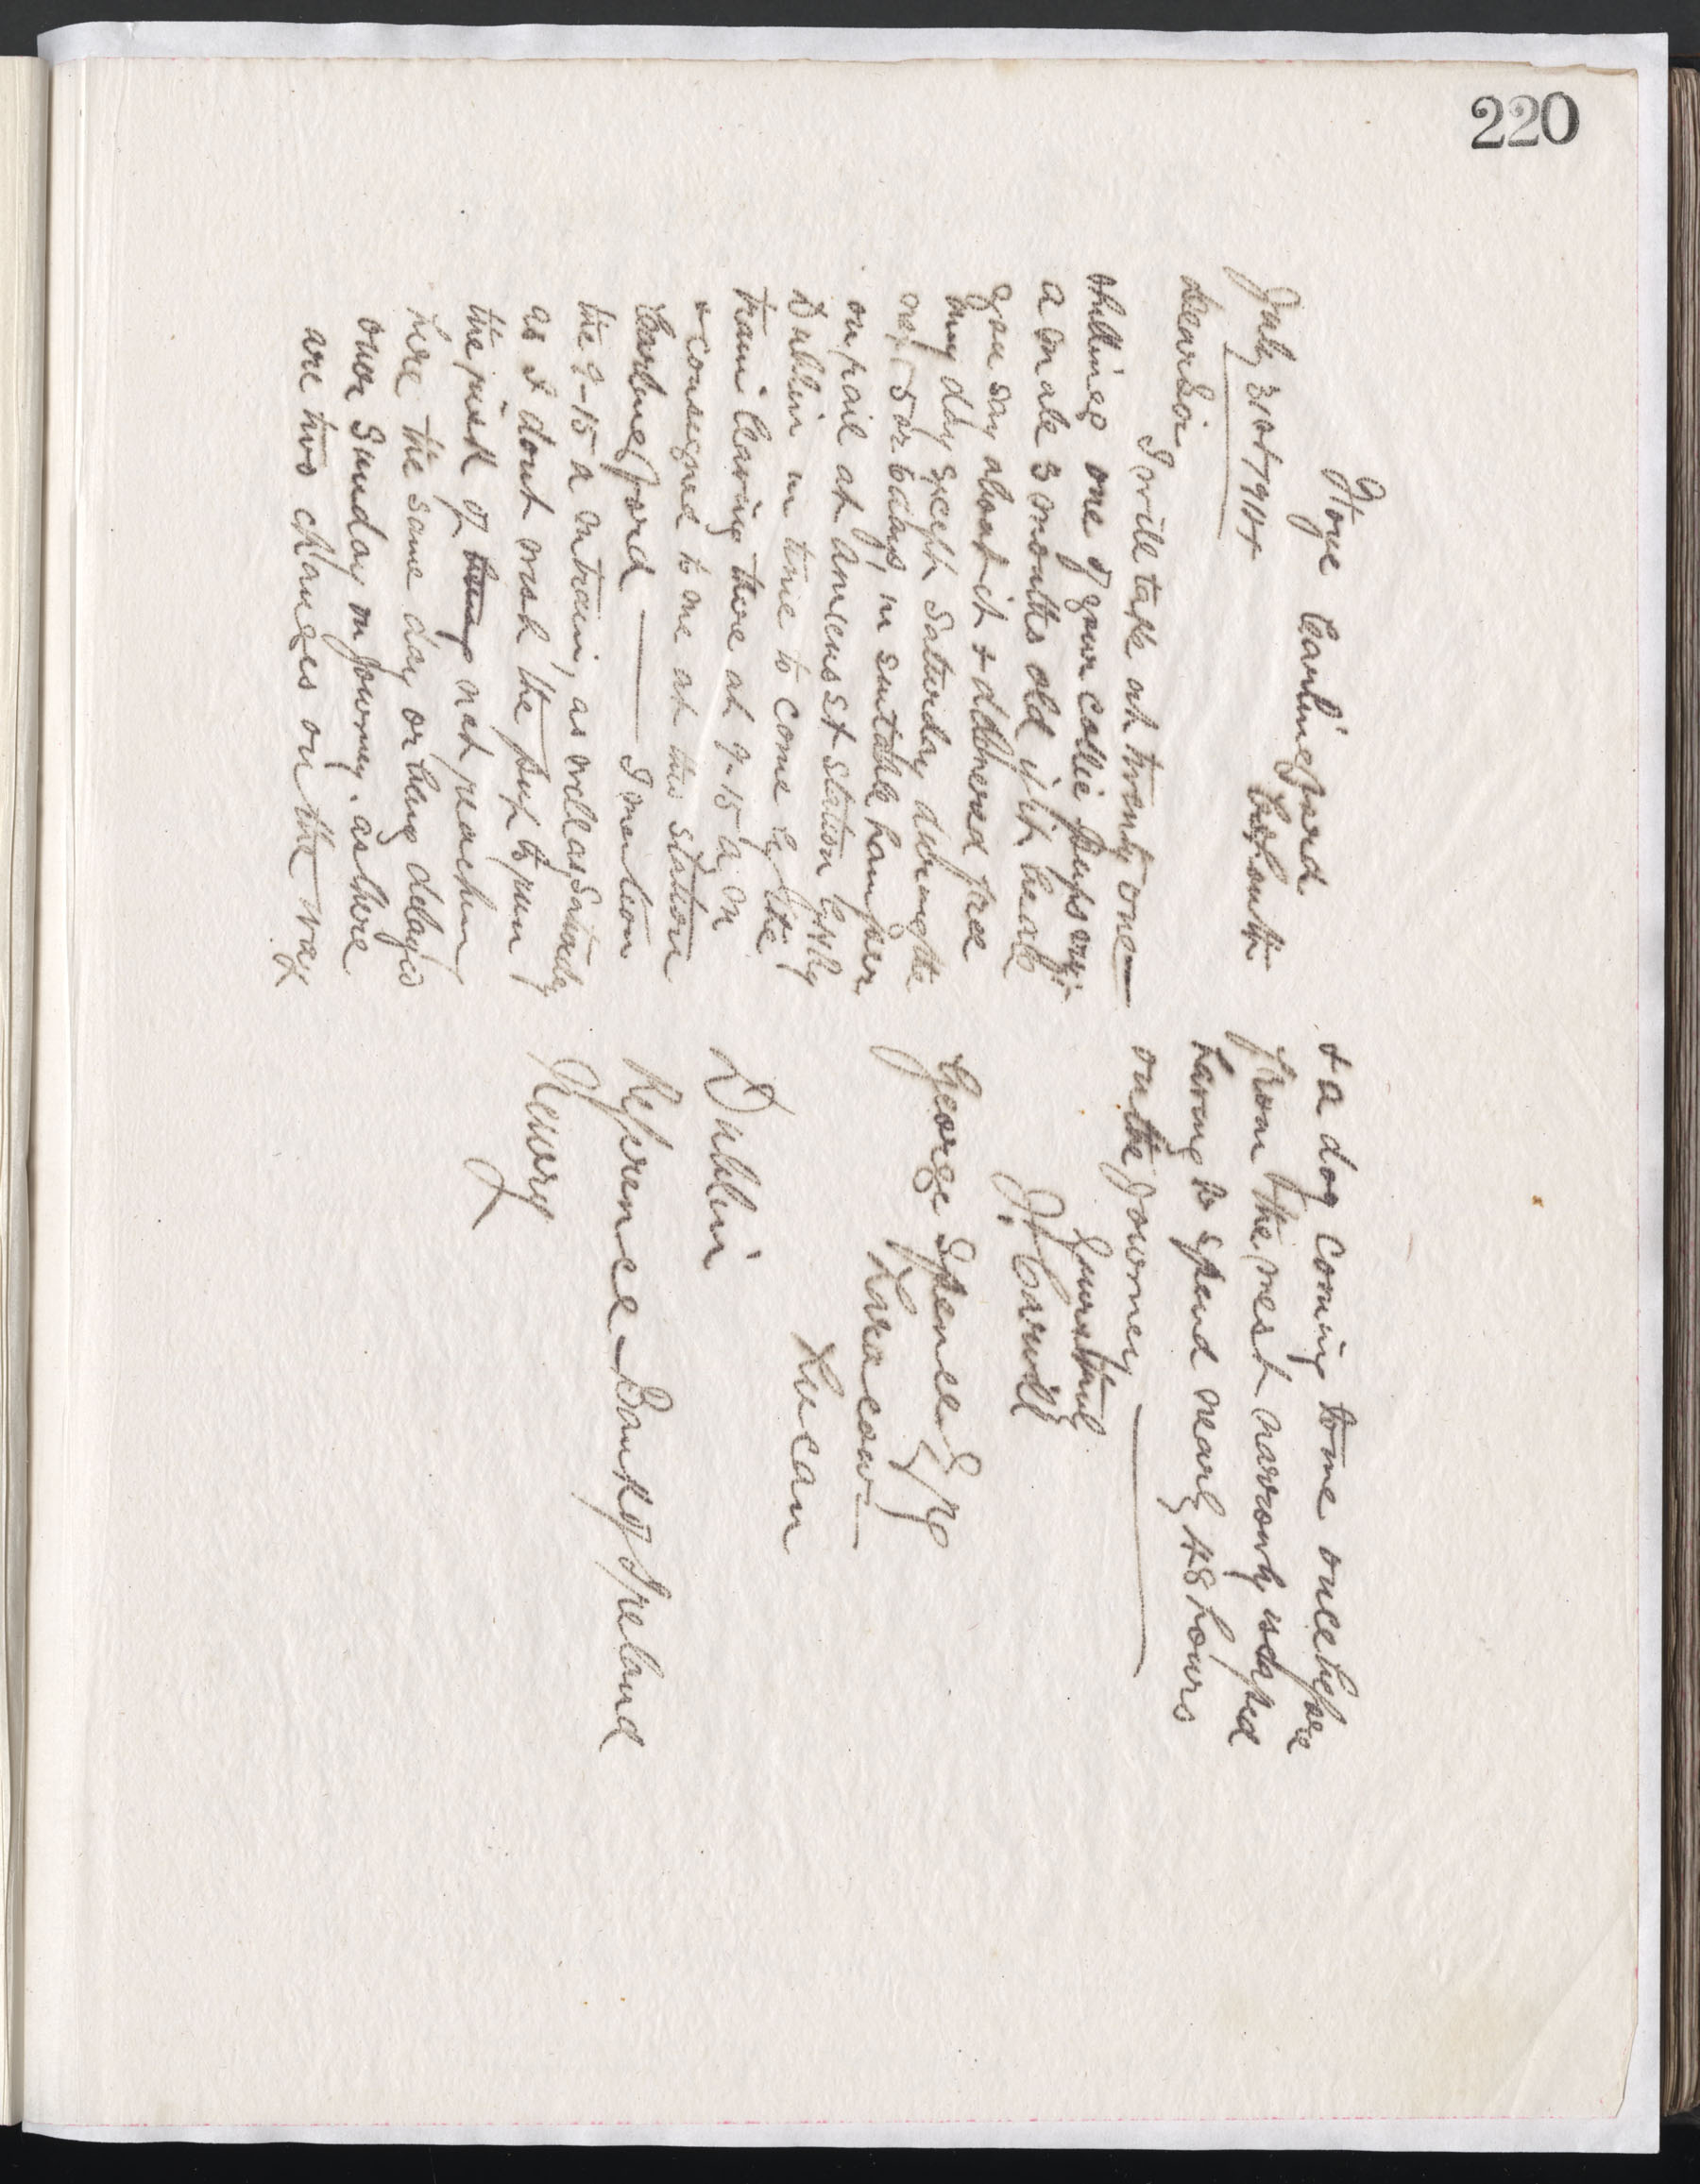 220
Carlingford
Co Louth
July 31st
Dear Sir
I will take at twenty one
shillings one of your collie pups viz:-
a male 3 months old if it bears
you say about it & delivered free
any day except Saturday during the
next 5 or 6 days, in suitable hamper
on rail at Amiens St Station G N Ry
Dublin in time to come by the
train leaving there at 9-15 a m
& consigned to me at this station
Carlingford — I mention
the 9-15 a m train, as well as Saturday
as I dont wish the pup to run
the risk of not reaching
here the same day or being delayed
over Sunday on journey. as there
are two changes on the way
& a dog coming to me once before
from the west narrowly escaped
having to spend nearly 48 hours
on the journey —
Yours truly
George Spence Esqre
Laracow
Lucan
Dublin
Refrence — Bank of Ireland
Newry